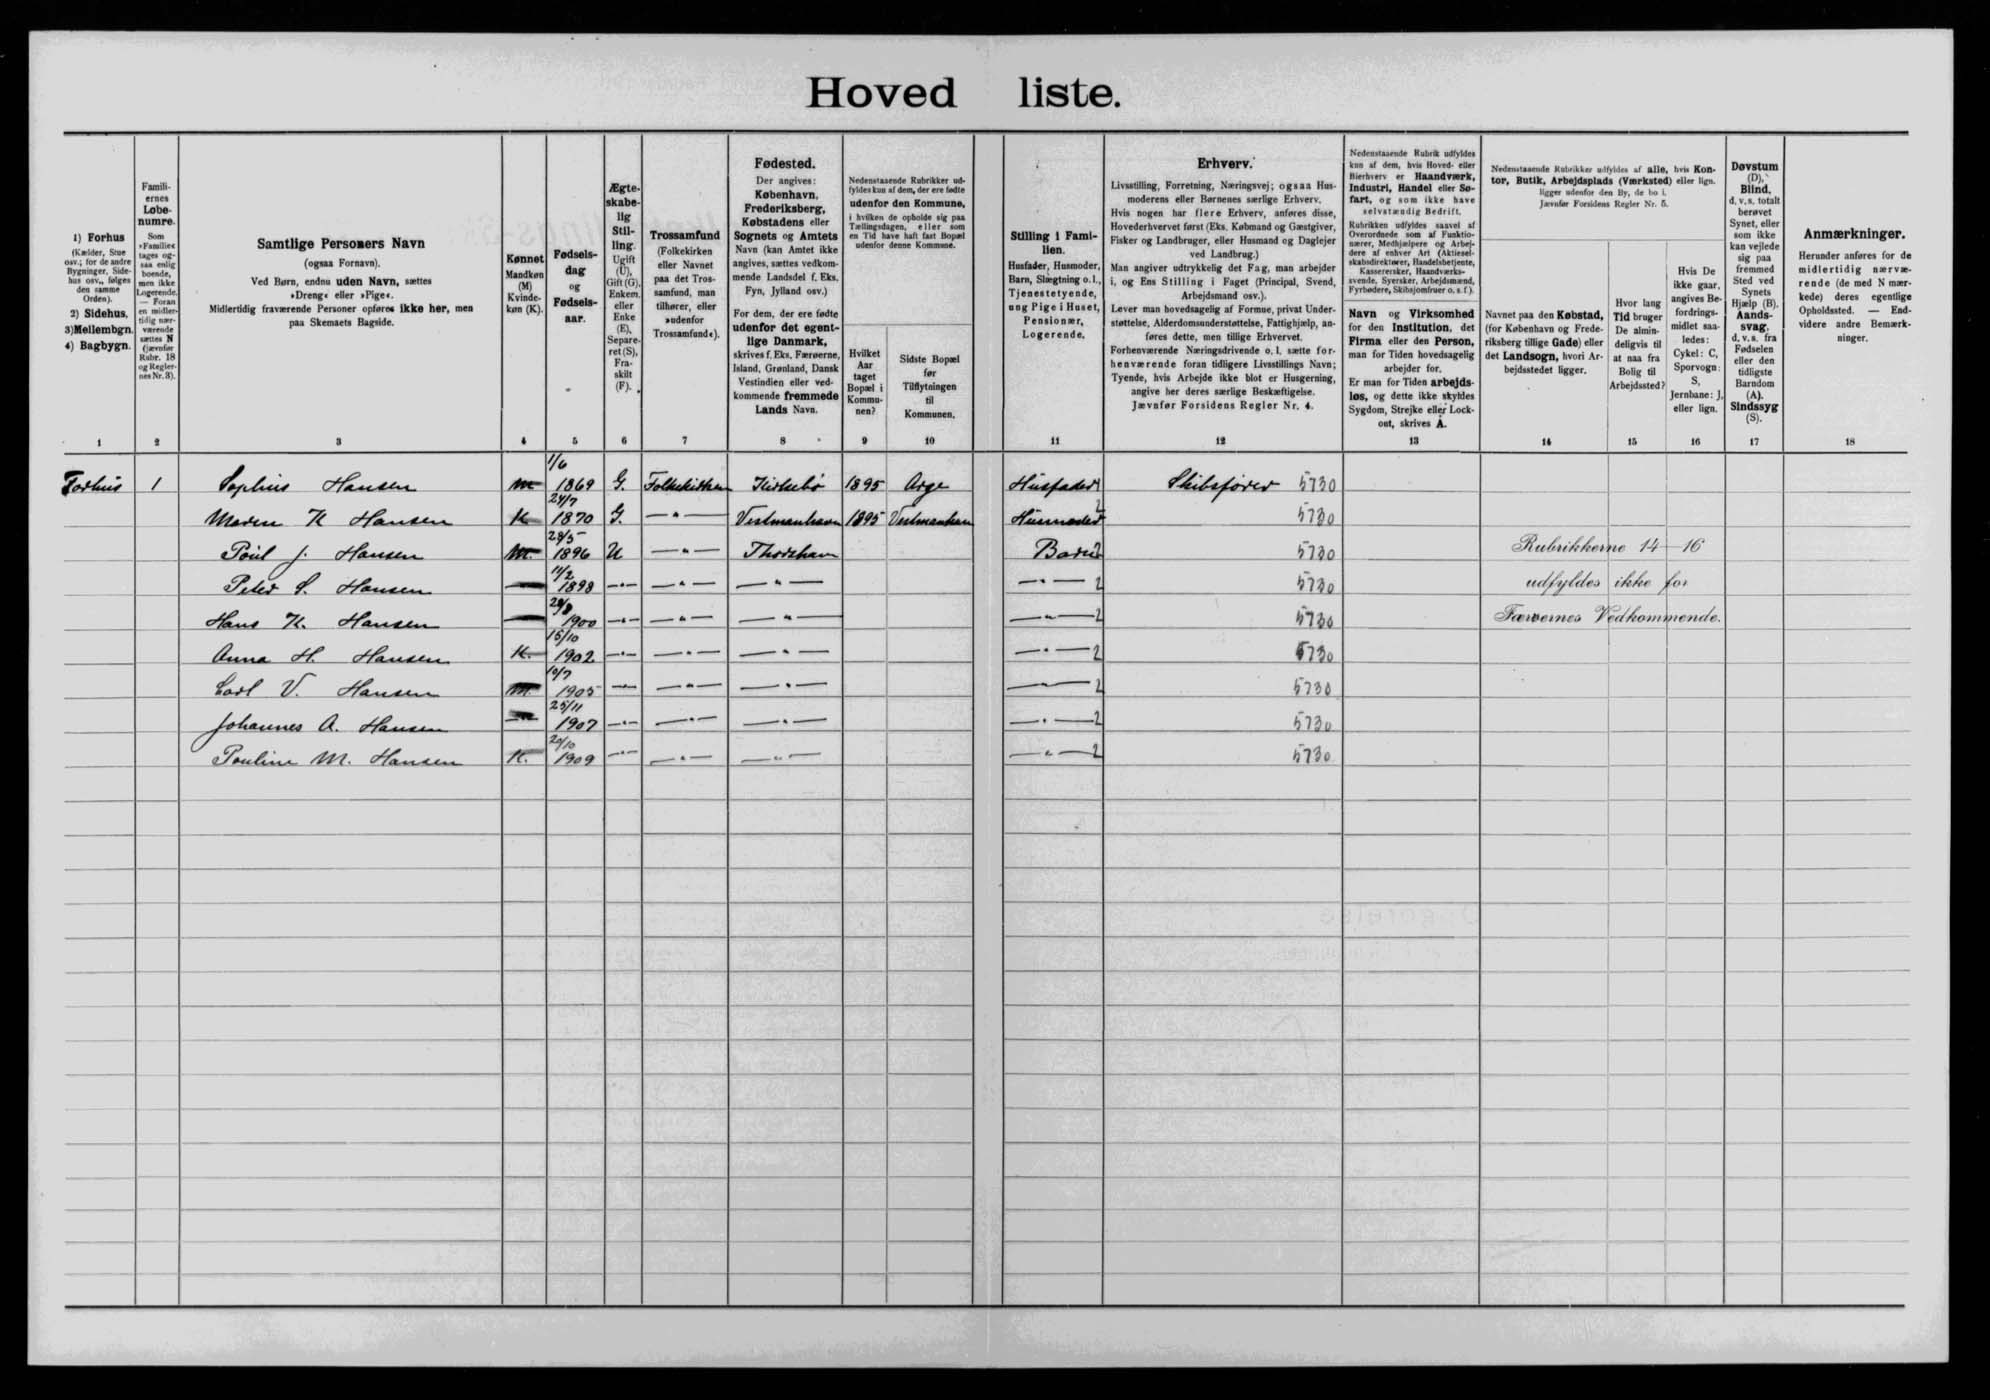 Hoved liste.
1) Forhus
(Kælder, Stue
osv.; for de andre
Bygninger, Side-
hus osv., følges
den samme
Orden).
2) Sidehus,
3) Mellembgn.
4) Bagbygn.
1
Famili-
ernes
Løbe-
numre.
Som
»Familie«
tages og-
saa enlig
boende,
men ikke
Logerende.
— Foran
en midler-
tidig nær-
værende
sættes N
(jævnfør
Rubr. 18
og Regler-
nes Nr. 3).
2
Samtlige Personers Navn
(ogsaa Fornavn).
Ved Børn, endnu uden Navn, sættes
»Dreng« eller »Pige«.
Midlertidig fraværende Personer opføres ikke her, men
paa Skemaets Bagside.
3
Kønnet
Mandkøn
(M)
Kvinde-
køn (K).
4
Fødsels-
dag
og
Fødsels-
aar.
5
Ægte-
skabe-
lig
Stil-
ling.
Ugift
(U),
Gift (G),
Enkem.
eller
Enke
(E),
Separe-
ret (S),
Fra-
skilt
(F).
6
Trossamfund
(Folkekirken
eller Navnet
paa det Tros-
samfund, man
tilhører, eller
»udenfor
Trossamfund«).
7
Fødested.
Der angives:
København,
Frederiksberg,
Købstadens eller
Sognets og Amtets
Navn (kan Amtet ikke
angives, sættes vedkom-
mende Landsdel f. Eks.
Fyn, Jylland osv.)
For dem, der ere fødte
udenfor det egent-
lige Danmark,
skrives f. Eks. Færøerne,
Island, Grønland, Dansk
Vestindien eller ved-
kommende fremmede
Lands Navn.
8
Nedenstaaende Rubrikker ud-
fyldes kun af dem, der ere fødte
udenfor den Kommune,
i hvilken de opholde sig paa
Tællingsdagen, eller som
en Tid have haft fast Bopæl
udenfor denne Kommune.
Hvilket
Aar
taget
Bopæl i
Kommu-
nen?
9
Sidste Bopæl
før
Tilflytningen
til
Kommunen.
10
Stilling i Fami-
lien.
Husfader, Husmoder,
Barn, Slægtning o. l.,
Tjenestetyende,
ung Pige i Huset,
Pensionær,
Logerende.
11
Erhverv.
Livsstilling, Forretning, Næringsvej; ogsaa Hus-
moderens eller Børnenes særlige Erhverv.
Hvis nogen har flere Erhverv, anføres disse,
Hovederhvervet først (Eks. Købmand og Gæstgiver,
Fisker og Landbruger, eller Husmand og Daglejer
ved Landbrug.)
Man angiver udtrykkelig det Fag, man arbejder
i, og Ens Stilling i Faget (Principal, Svend,
Arbejdsmand osv.).
Lever man hovedsagelig af Formue, privat Under-
støttelse, Alderdomsunderstøttelse, Fattighjælp, an-
føres dette, men tillige Erhvervet.
Forhenværende Næringsdrivende o. l. sætte for-
henværende foran tidligere Livsstillings Navn;
Tyende, hvis Arbejde ikke blot er Husgerning,
angive her deres særlige Beskæftigelse.
Jævnfør Forsidens Regler Nr. 4.
12
Nedenstaaende Rubrik udfyldes
kun af dem, hvis Hoved- eller
Bierhverv er Haandværk,
Industri, Handel eller Sø-
fart, og som ikke have
selvstændig Bedrift.
Rubrikken udfyldes saavel af
Overordnede som af Funktio-
nærer, Medhjælpere og Arbej-
dere af enhver Art (Aktiesel-
skabsdirektører, Handelsbetjente,
Kasserersker, Haandværks-
svende, Syersker, Arbejdsmænd,
Fyrbødere, Skibsjomfruer o. s. f.).
Navn og Virksomhed
for den Institution, det
Firma eller den Person,
man for Tiden hovedsagelig
arbejder for.
Er man for Tiden arbejds-
løs, og dette ikke skyldes
Sygdom, Strejke eller Lock-
out, skrives A.
13
Nedenstaaende Rubrikker udfyldes af alle, hvis Kon-
tor, Butik, Arbejdsplads (Værksted) eller lign.
ligger udenfor den By, de bo i.
Jævnfør Forsidens Regler Nr. 5.
Navnet paa den Købstad,
(for København og Frede-
riksberg tillige Gade) eller
det Landsogn, hvori Ar-
bejdsstedet ligger.
14
Hvor lang
Tid bruger
De almin-
deligvis til
at naa fra
Bolig til
Arbejdssted?
15
Hvis De
ikke gaar,
angives Be-
fordrings-
midlet saa-
ledes:
Cykel: C,
Sporvogn:
S,
Jernbane: J,
eller lign.
16
Døvstum
(D),
Blind,
d. v. s. totalt
berøvet
Synet, eller
som ikke
kan vejlede
sig paa
fremmed
Sted ved
Synets
Hjælp (B).
Aands-
svag,
d. v. s. fra
Fødselen
eller den
tidligste
Barndom
(A).
Sindssyg
(S).
17
Anmærkninger.
Herunder anføres for de
midlertidig nærvæ-
rende (de med N mær-
kede) deres egentlige
Opholdssted. — End-
videre andre Bemærk-
ninger.
18
Forhus 1 Sophus Hansen M 1/6 1869 G. Folkekirken Kirkebø 1895 Arge Husfader Skibsfører 5730
Maren K Hansen K 24/7 1870 G. — " — Vestmanhavn 1895 Vestmanhavn Husmoder 2 5730
Poul J. Hansen M. 28/5 1896 U — " — Thorshavn Barn 2 5730 Rubrikkerne 14—16
Peter S. Hansen — 11/2 1898 — " — — " — — " — — " — 2 5730 udfyldes ikke for
Hans K. Hansen — 1900 — " — — " — — " — — " — 2 5730 Færøernes Vedkommende.
Anna H. Hansen K. 15/10 1902 — " — — " — — " — — " — 2 5730
Carl V. Hansen M. 1905 — " — — " — — " — — " — 2 5730
Johannes A. Hansen — 25/11 1907 — " — — " — — " — — " — 2 5730
Pouline M. Hansen K. 20/10 1909 — " — — " — — " — — " — 2 5730